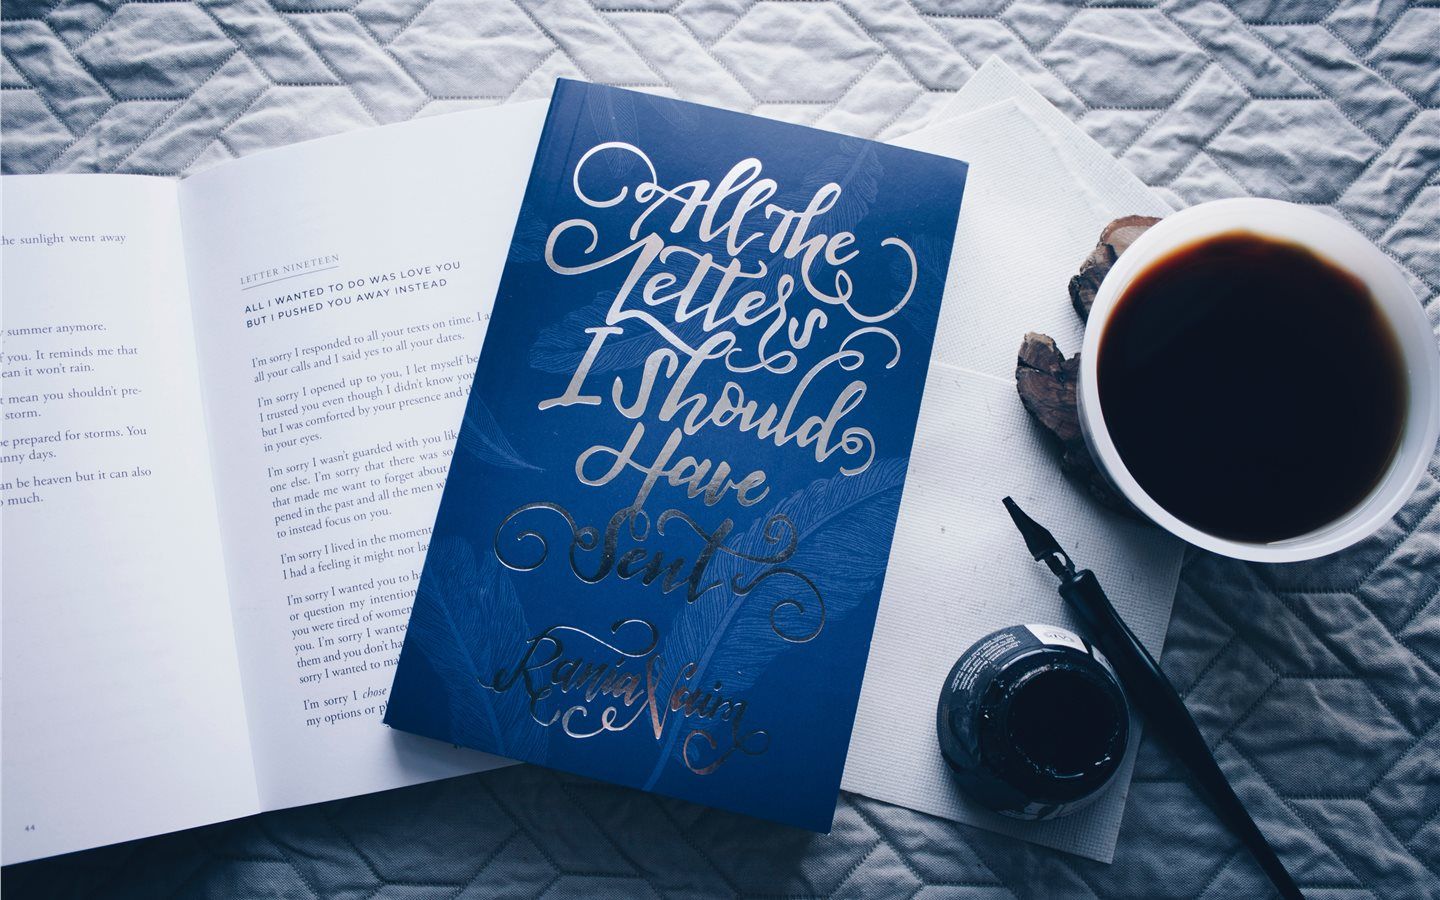 he sunlight went away
summer anymore.
f you. It reminds me that
ean it won't rain.
t mean you shouldn't pre-
storm.
be prepared for storms. You
nny days.
an be heaven but it can also
o much.
44
LETTER NINETEEN
ALL I WANTED TO DO WAS LOVE YOU
BUT I PUSHED YOU AWAY INSTEAD
I'm sorry I responded to all your texts on time. I a
all your calls and I said yes to all your dates.
I'm sorry I opened up to you, I let myself be
I trusted you even though I didn't know you
but I was comforted by your presence and t
in your eyes.
I'm sorry I wasn't guarded with you lik
one else. I'm sorry that there was so
that made me want to forget about
pened in the past and all the men w
to instead focus on you.
I'm sorry I lived in the moment
I had a feeling it might not las
I'm sorry I wanted you to ha
or question my intention
you were tired of women
you. I'm sorry I wante
them and you don't ha
sorry I wanted to ma
I'm sorry I chose
my options or pl
All the
Letters
I Should
Have
Sent
Rania Naim